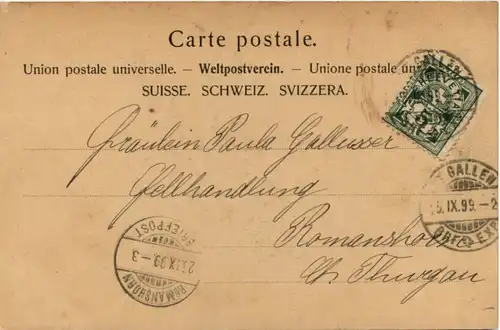 Carte postale.
Union postale universelle. — Weltpostverein. — Unione postale uni
SUISSE. SCHWEIZ. SVIZZERA.
GALLEN
Fräulein Paula Gallusser
Fellhandlung
Romanshorn
Ct. Thurgau
GALLEN
5.IX.99.–2
BRF. EXP.
ROMANSHORN
IX 99–3
BRIEFPOST